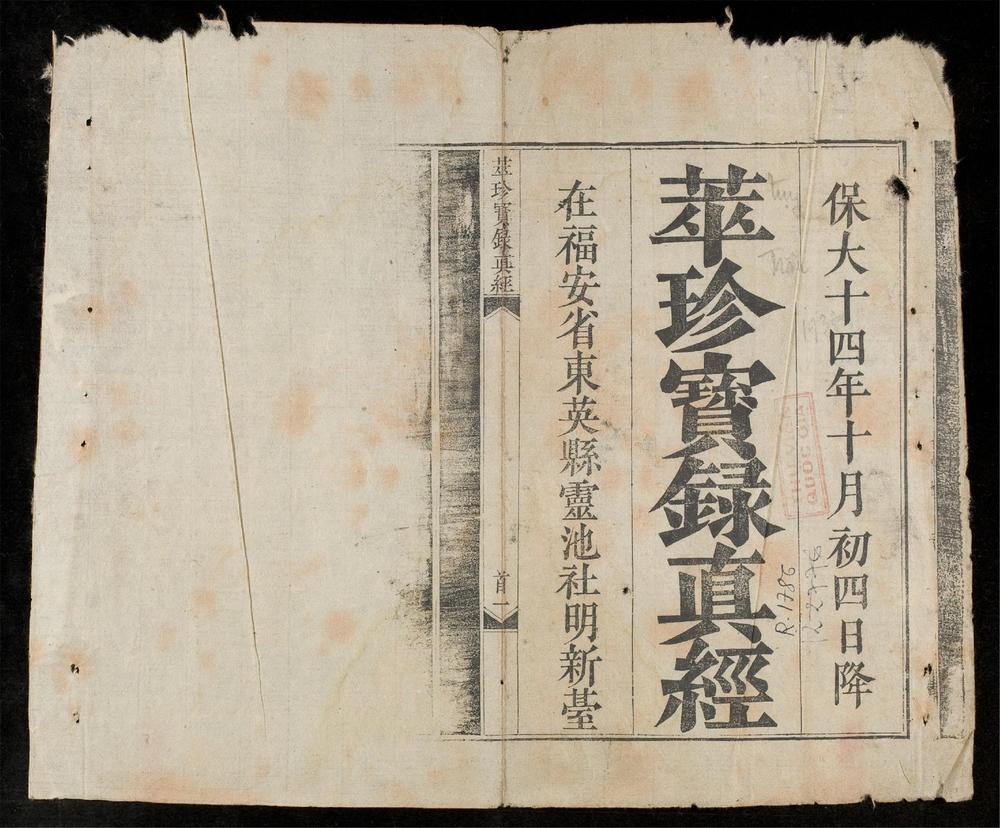 保大十四年十月初四日降
萃珍寶録真經
在福安省東英縣靈池社明新䑓
萃珍寶録真經
首一
R.1786
QUOC GIA